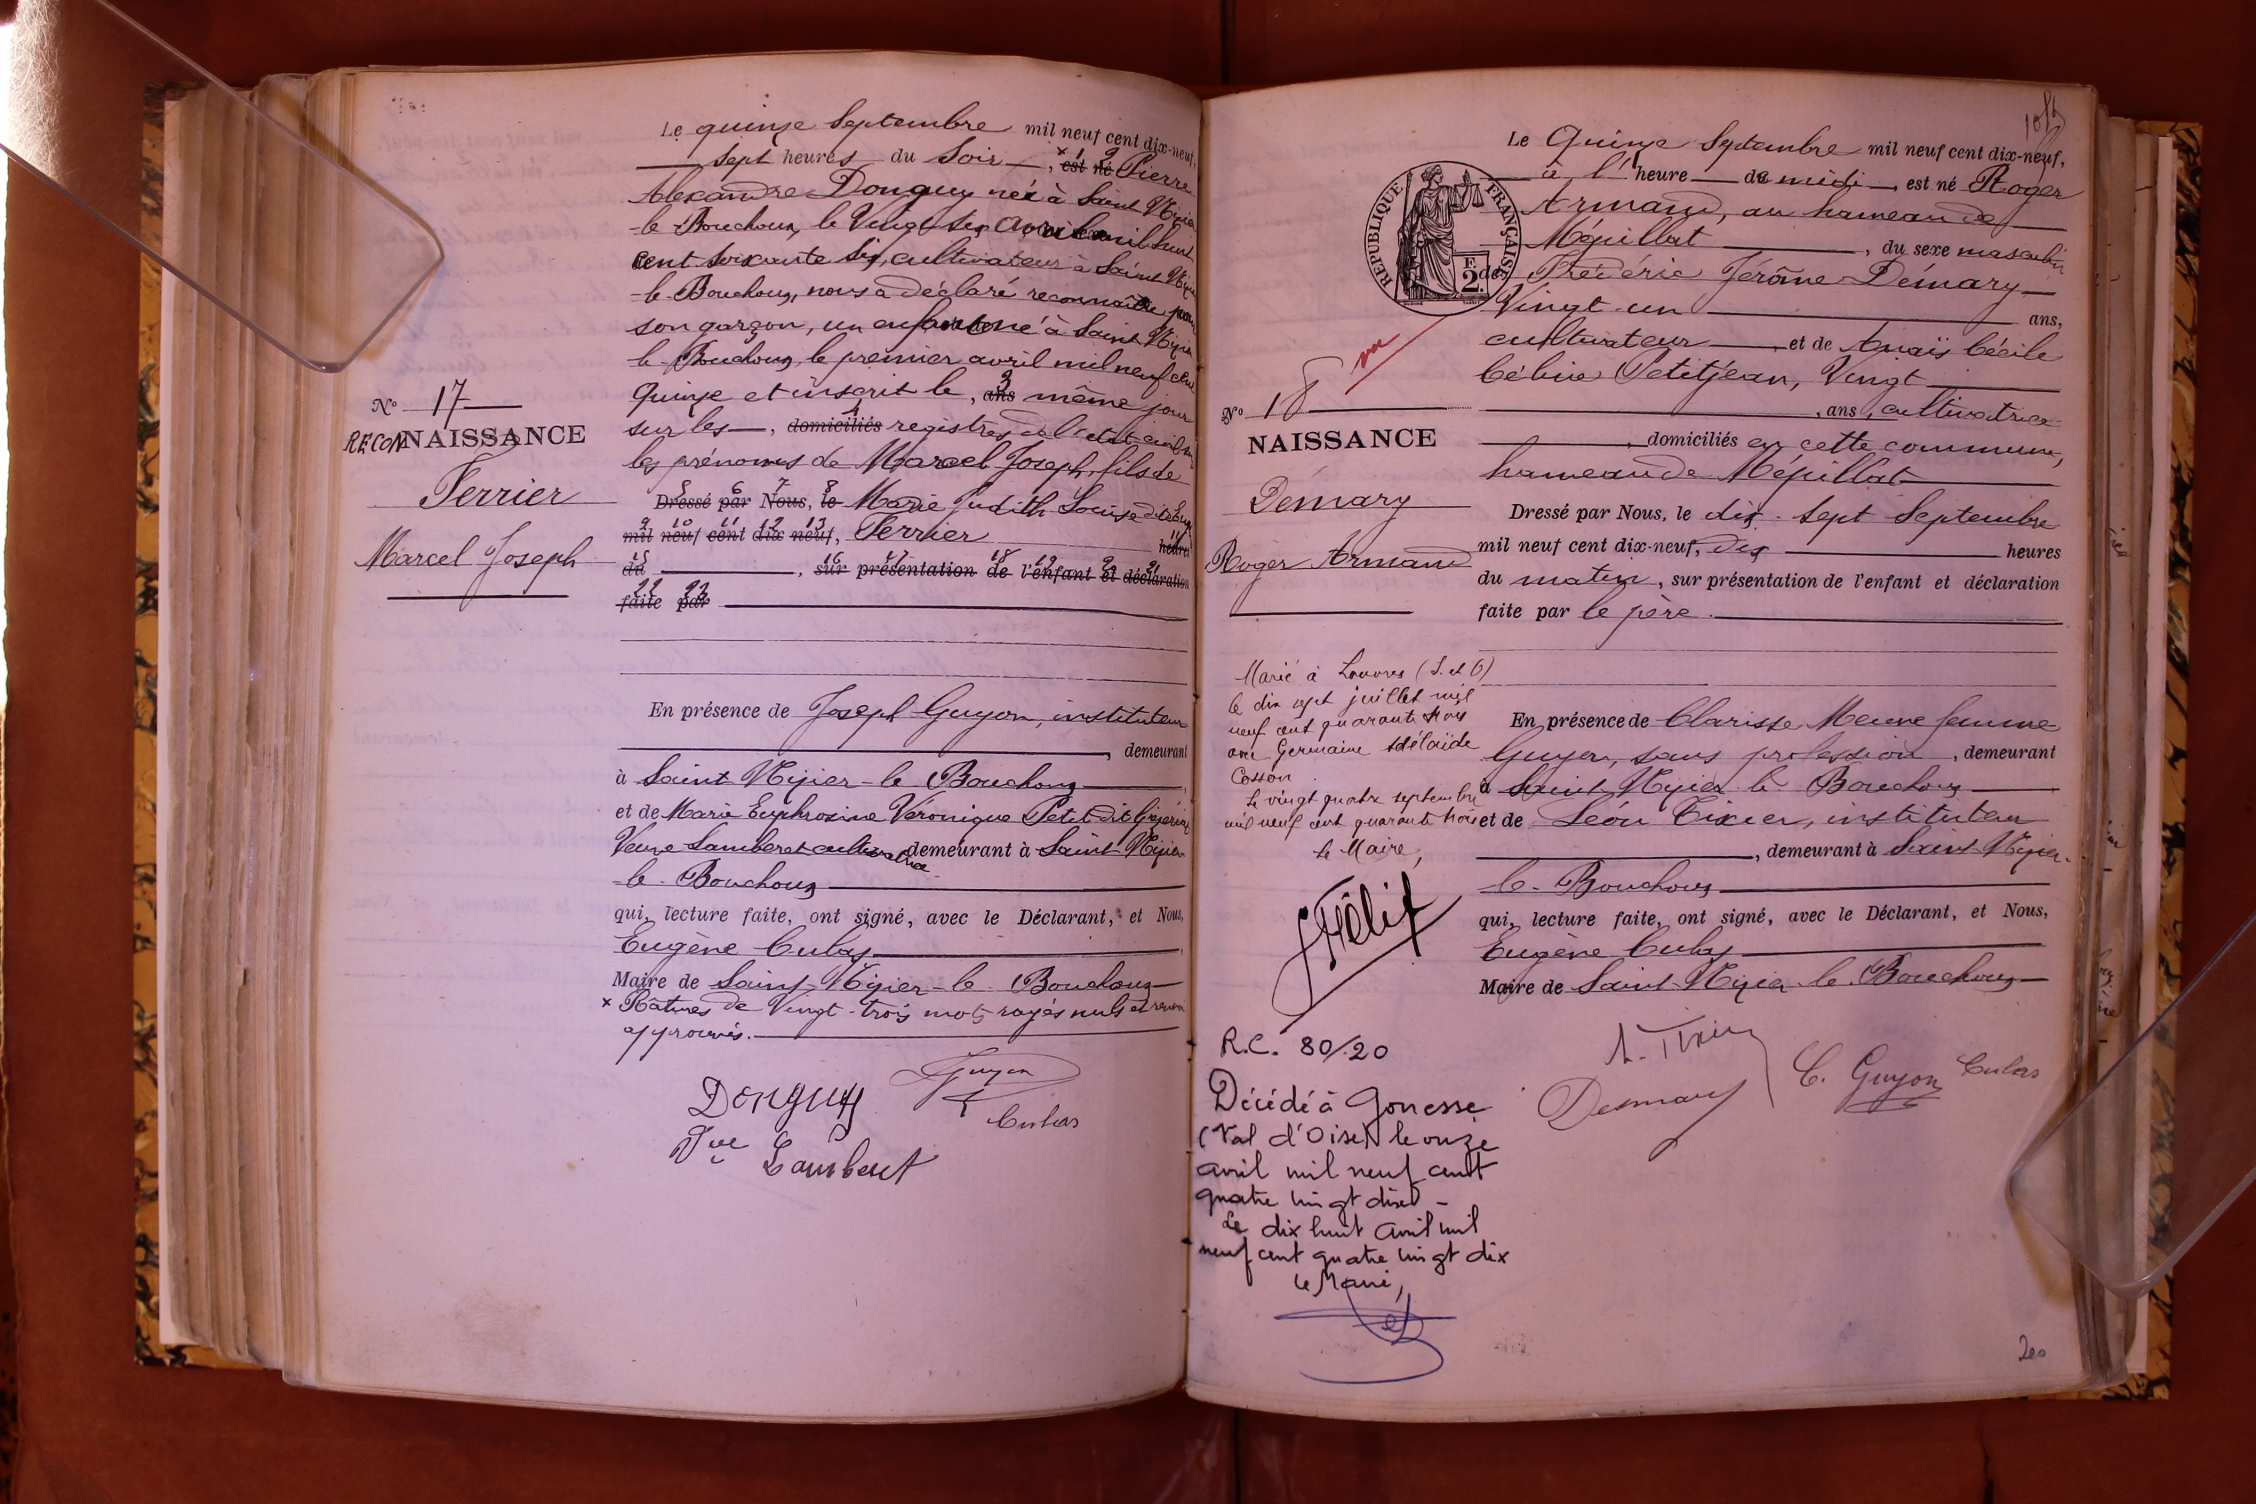 Le quinze Septembre mil neuf cent dix-neuf,
sept heures du Soir, × est né Pierre
Alexandre Donguy né à Saint Nizier
le Bouchoux, le Vingt-six avril mil huit
cent soixante six, cultivateur à Saint Nizier
le Bouchoux, nous a déclaré reconnaître pour
son garçon, un enfant né à Saint Nizier
le Bouchoux le premier avril mil neuf cent
quinze et inscrit le, ans même jour
sur les, domiciliés registres de l'état civil
les prénoms de Marcel Joseph, fils de
Dressé par Nous, le Marie Judith Louise dite
mil neuf cent dix neuf, Ferrier heures
du, sur présentation de l'enfant et déclaration
faite par
N° 17
RECON NAISSANCE
Ferrier
Marcel Joseph
En présence de Joseph Guyon, instituteur
, demeurant
à Saint Nizier-le Bouchoux
et de Marie Euphrosine Véronique Petit dit
Veuve Lamberet cultivatrice demeurant à Saint Nizier
le Bouchoux
qui, lecture faite, ont signé, avec le Déclarant, et Nous,
Eugène Culas
Maire de Saint Nizier-le Bouchoux
× Ratures de Vingt-trois mots rayés nuls et
approuvés.
Donguy Guyon
Culas
Vve Lamberet
Le Quinze Septembre mil neuf cent dix-neuf,
à l' heure de midi, est né Roger
Armand, au hameau de
Mépillat, du sexe masculin
de Frédéric Jérôme Démary
Vingt-un ans,
cultivateur, et de Anaïs Cécile
Céline Petitjean, Vingt
, ans, cultivatrice
, domiciliés en cette commune,
hameau de Mépillat
Dressé par Nous, le dix-sept Septembre
mil neuf cent dix-neuf, dix heures
du matin, sur présentation de l'enfant et déclaration
faite par le père.
RÉPUBLIQUE FRANÇAISE
2F
N° 18
NAISSANCE
Démary
Roger Armand
Marié à Louvres (S. et O)
le dix sept juillet mil
neuf cent quarante trois
avec Germaine Adélaïde
Cosson
Le vingt quatre septembre
mil neuf cent quarante trois
Le Maire,
En présence de Clarisse Meune femme
Guyon, sans profession, demeurant
à Saint Nizier le Bouchoux
et de Léon Tixier, instituteur
, demeurant à Saint Nizier-
le-Bouchoux
qui, lecture faite, ont signé, avec le Déclarant, et Nous,
Eugène Culas
Maire de Saint-Nizier-le-Bouchoux
L. Tixier
Demary C. Guyon Culas
R.C. 80/20
Décédé à Gonesse
(Val d'Oise) le onze
avril mil neuf cent
quatre vingt dix -
Le dix huit avril mil
neuf cent quatre vingt dix
Le Maire,
200